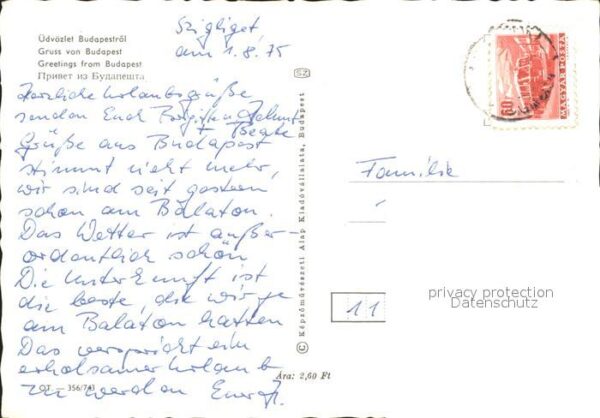 Szigliget,
am 1.8.75
Üdvözlet Budapestről
Gruss von Budapest
Greetings from Budapest
Привет из Будапешта
Herzliche Urlaubsgrüße
senden Euch Brigitte, Helmut
+ Beate
Grüße aus Budapest
stimmt nicht mehr,
wir sind seit gestern
schon am Balaton.
Das Wetter ist außer-
ordentlich schön
Die Unterkunft ist
die beste, die wir je
am Balaton hatten
Das verspricht ein
erholsamer Urlaub
zu werden
OT. — 356/743
Ára: 2,60 Ft
SZ
© Képzőművészeti Alap Kiadóvállalata, Budapest
60 f
MAGYAR POSTA
Familie
11
privacy protection
Datenschutz